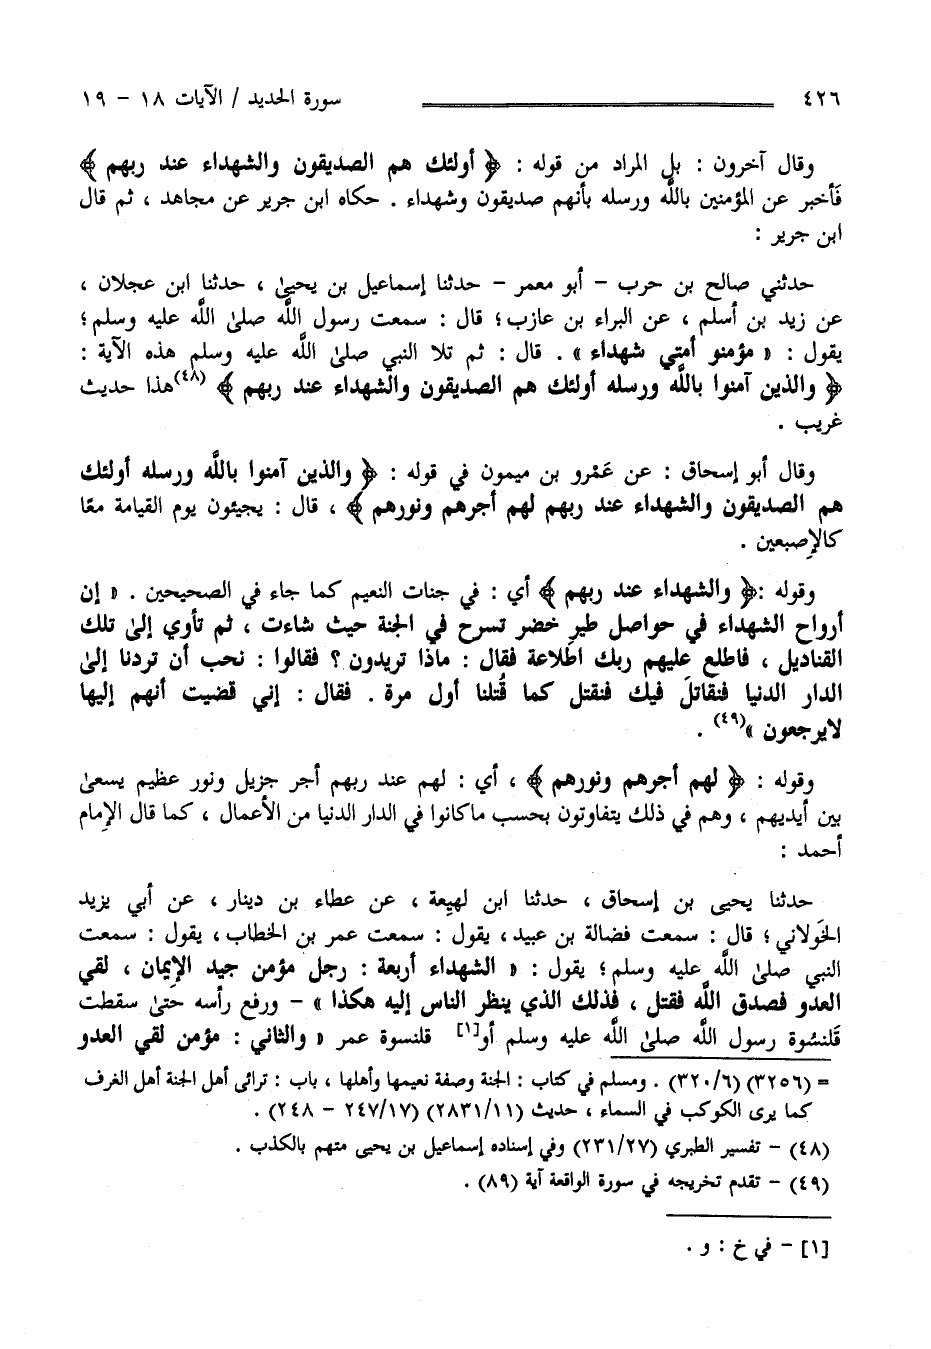 ٤٢٦ سورة الحديد / الآيات ١٨ – ١٩
وقال آخرون : بل المراد من قوله : ﴿ أولئك هم الصديقون والشهداء عند ربهم ﴾
فَأخبر عن المؤمنين باللَّه ورسله بأنهم صديقون وشهداء . حكاه ابن جرير عن مجاهد ، ثم قال
ابن جرير :
حدثني صالح بن حرب – أبو معمر – حدثنا إسماعيل بن يحيىٰ ، حدثنا ابن عجلان ،
عن زيد بن أسلم ، عن البراء بن عازب؛ قال : سمعت رسول اللَّه صلىٰ اللَّه عليه وسلم؛
يقول : « مؤمنو أمتي شهداء » . قال : ثم تلا النبي صلىٰ اللَّه عليه وسلم هذه الآية :
﴿ والذين آمنوا باللَّه ورسله أولئك هم الصديقون والشهداء عند ربهم ﴾ (٤٨)هذا حديث
غريب .
وقال أبو إسحاق : عن عَمْرو بن ميمون في قوله : ﴿ والذين آمنوا باللَّه ورسله أولئك
هم الصديقون والشهداء عند ربهم لهم أجرهم ونورهم ﴾ ، قال : يجيئون يوم القيامة معًا
كالإصبعين .
وقوله :﴿ والشهداء عند ربهم ﴾ أي : في جنات النعيم كما جاء في الصحيحين . « إن
أرواح الشهداء في حواصل طيرٍ خضر تسرح في الجنة حيث شاءت ، ثم تأوي إلىٰ تلك
القناديل ، فاطلع عليهم ربك اطلاعة فقال : ماذا تريدون ؟ فقالوا : نحب أن تردنا إلىٰ
الدار الدنيا فنقاتلَ فيك فنقتل كما قُتلنا أول مرة . فقال : إني قضيت أنهم إليها
لايرجعون »(٤٩) .
وقوله : ﴿ لهم أجرهم ونورهم ﴾ ، أي : لهم عند ربهم أجر جزيل ونور عظيم يسعىٰ
بين أيديهم ، وهم في ذلك يتفاوتون بحسب ماكانوا في الدار الدنيا من الأعمال ، كما قال الإمام
أحمد :
حدثنا يحيى بن إسحاق ، حدثنا ابن لهيعة ، عن عطاء بن دينار ، عن أبي يزيد
الخَولاني؛ قال : سمعت فضالة بن عبيد، يقول : سمعت عمر بن الخطاب، يقول : سمعت
النبي صلىٰ اللَّه عليه وسلم؛ يقول : « الشهداء أربعة : رجل مؤمن جيد الإيمان ، لقي
العدو فصدق اللَّه فقتل ، فذلك الذي ينظر الناس إليه هكذا » – ورفع رأسه حتىٰ سقطت
قَلنسُوة رسول اللَّه صلىٰ اللَّه عليه وسلم أو[١] قلنسوة عمر « والثاني : مؤمن لقي العدو
= (٣٢٥٦) (٣٢٠/٦) . ومسلم في كتاب : الجنة وصفة نعيمها وأهلها ، باب : ترائى أهل الجنة أهل الغرف
كما يرى الكوكب في السماء ، حديث (٢٨٣١/١١) (٢٤٧/١٧ – ٢٤٨) .
(٤٨) – تفسير الطبري (٢٣١/٢٧) وفي إسناده إسماعيل بن يحيى متهم بالكذب .
(٤٩) – تقدم تخريجه في سورة الواقعة آية (٨٩) .
[١] – في خ : و .